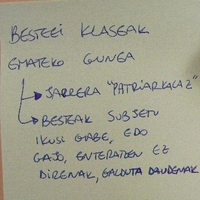 BESTEEI KLASEAK
EMATEKO GUNEA
→ SARRERA "PATRIARKALAZ"
→ BESTEAK SUBJETU
IKUSI GABE, EDO
GAJO, ENTERATZEN EZ
DIRENAK, GALDUTA DAUDENAK